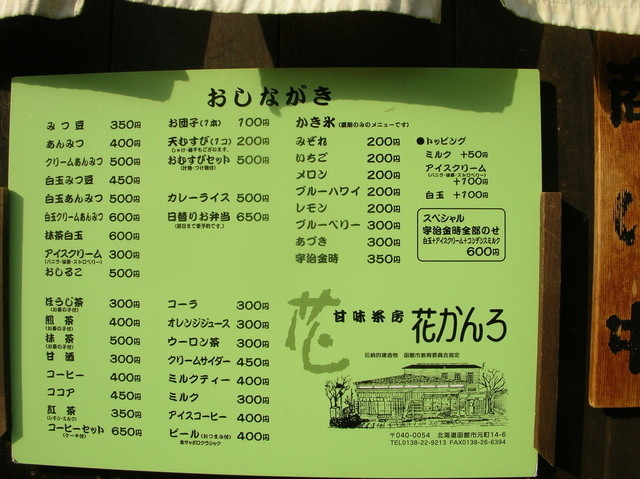 おしながき
みつ豆 350円
あんみつ 400円
クリームあんみつ 500円
白玉みつ豆 450円
白玉あんみつ 500円
白玉クリームあんみつ 600円
抹茶白玉 600円
アイスクリーム 300円
(バニラ・抹茶・ストロベリー)
おしるこ 500円
お団子(1本) 100円
天むすび(1コ) 200円
おむすびセット 500円
カレーライス 500円
日替りお弁当 650円
かき氷
みぞれ 200円
いちご 200円
メロン 200円
ブルーハワイ 200円
レモン 200円
ブルーベリー 300円
あづき 300円
宇治金時 350円
●トッピング
ミルク +50円
アイスクリーム
(バニラ・抹茶・ストロベリー)
+100円
白玉 +100円
スペシャル
宇治金時全部のせ
白玉+アイスクリーム+コンデンスミルク
600円
ほうじ茶 300円
(お茶の子付)
煎茶 400円
(お茶の子付)
抹茶 500円
(お茶の子付)
甘酒 300円
コーヒー 400円
ココア 450円
紅茶 350円
(レモン・ミルク)
コーヒーセット 650円
(ケーキ付)
コーラ 300円
オレンジジュース 300円
ウーロン茶 300円
クリームサイダー 450円
ミルクティー 400円
ミルク 300円
アイスコーヒー 400円
ビール(おつまみ付) 400円
缶サッポロクラシック
花
甘味茶房 花かんろ
伝統的建造物 函館市教育委員会指定
〒040-0054 北海道函館市元町14-6
TEL0138-22-9213 FAX0138-26-6394